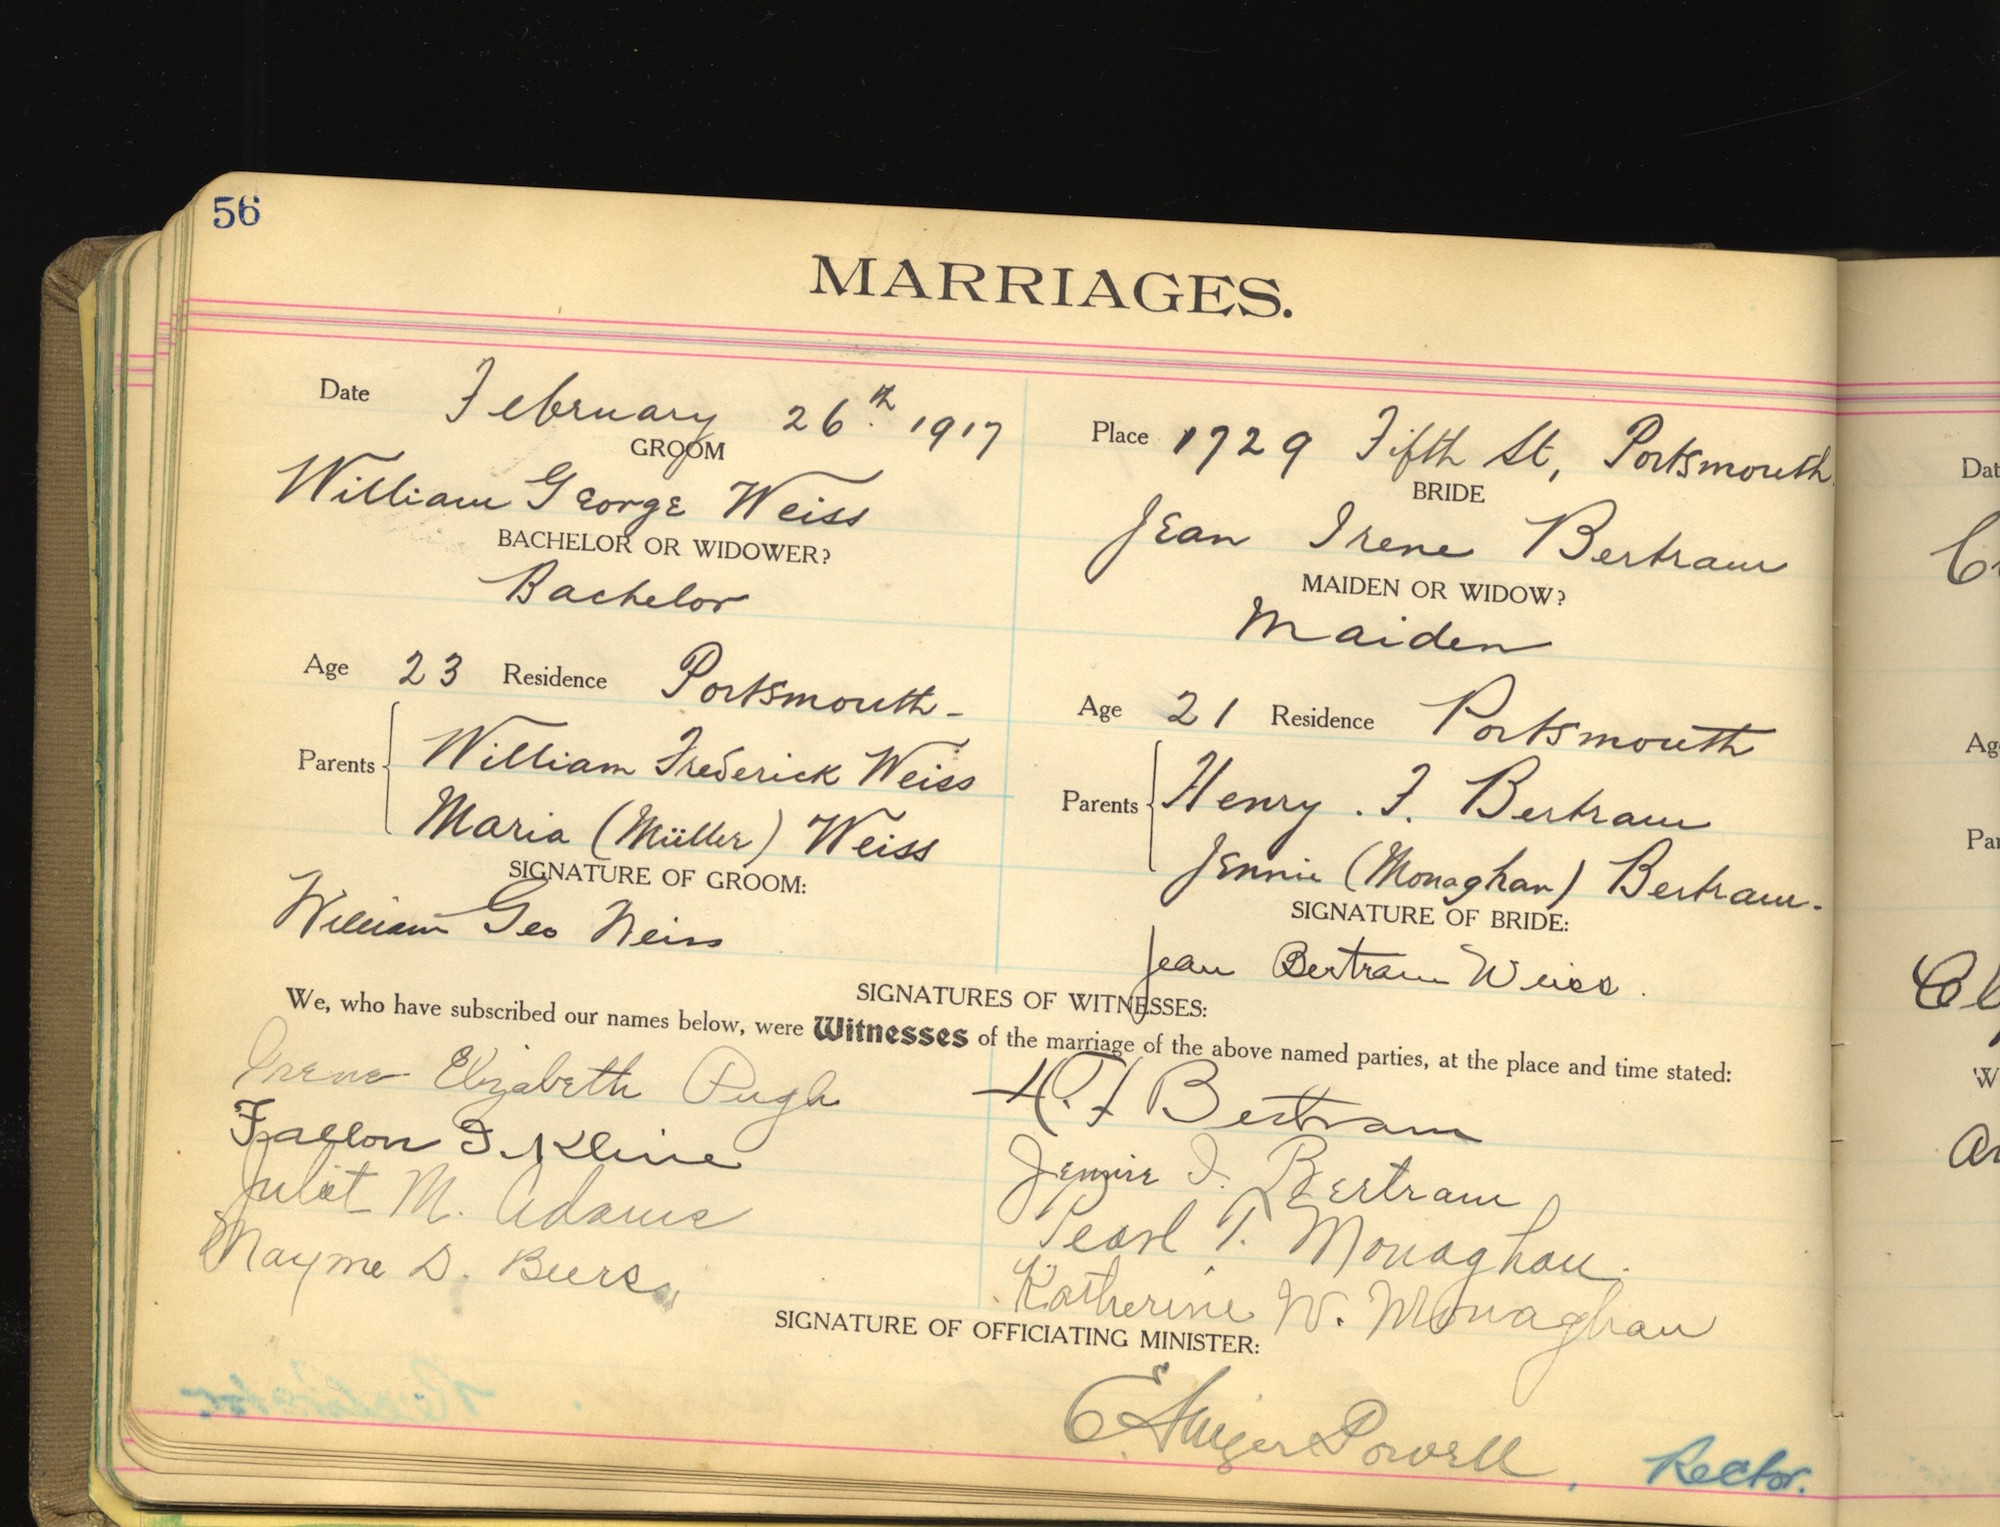 56
MARRIAGES.
Date February 26th. 1917
GROOM
William George Weiss
BACHELOR OR WIDOWER?
Bachelor
Age 23 Residence Portsmouth-
Parents William Frederick Weiss
Maria (Müller) Weiss
SIGNATURE OF GROOM:
William Geo Weiss
Place 1729 Fifth St, Portsmouth
BRIDE
Jean Irene Bertram
MAIDEN OR WIDOW?
Maiden
Age 21 Residence Portsmouth
Parents Henry . F. Bertram
Jennie (Monaghan) Bertram.
SIGNATURE OF BRIDE:
Jean Bertram Weiss.
SIGNATURES OF WITNESSES:
We, who have subscribed our names below, were Witnesses of the marriage of the above named parties, at the place and time stated:
Irene Elizabeth Pugh
Fallon F. Kline
Juliet M. Adams
Mayme D. Beers
H. F Bertram
Jennie I. Bertram
Pearl T. Monaghan.
Katherine W. Monaghan
SIGNATURE OF OFFICIATING MINISTER:
E Ainger Powell, Rector.
Dat
Ag
Par
W